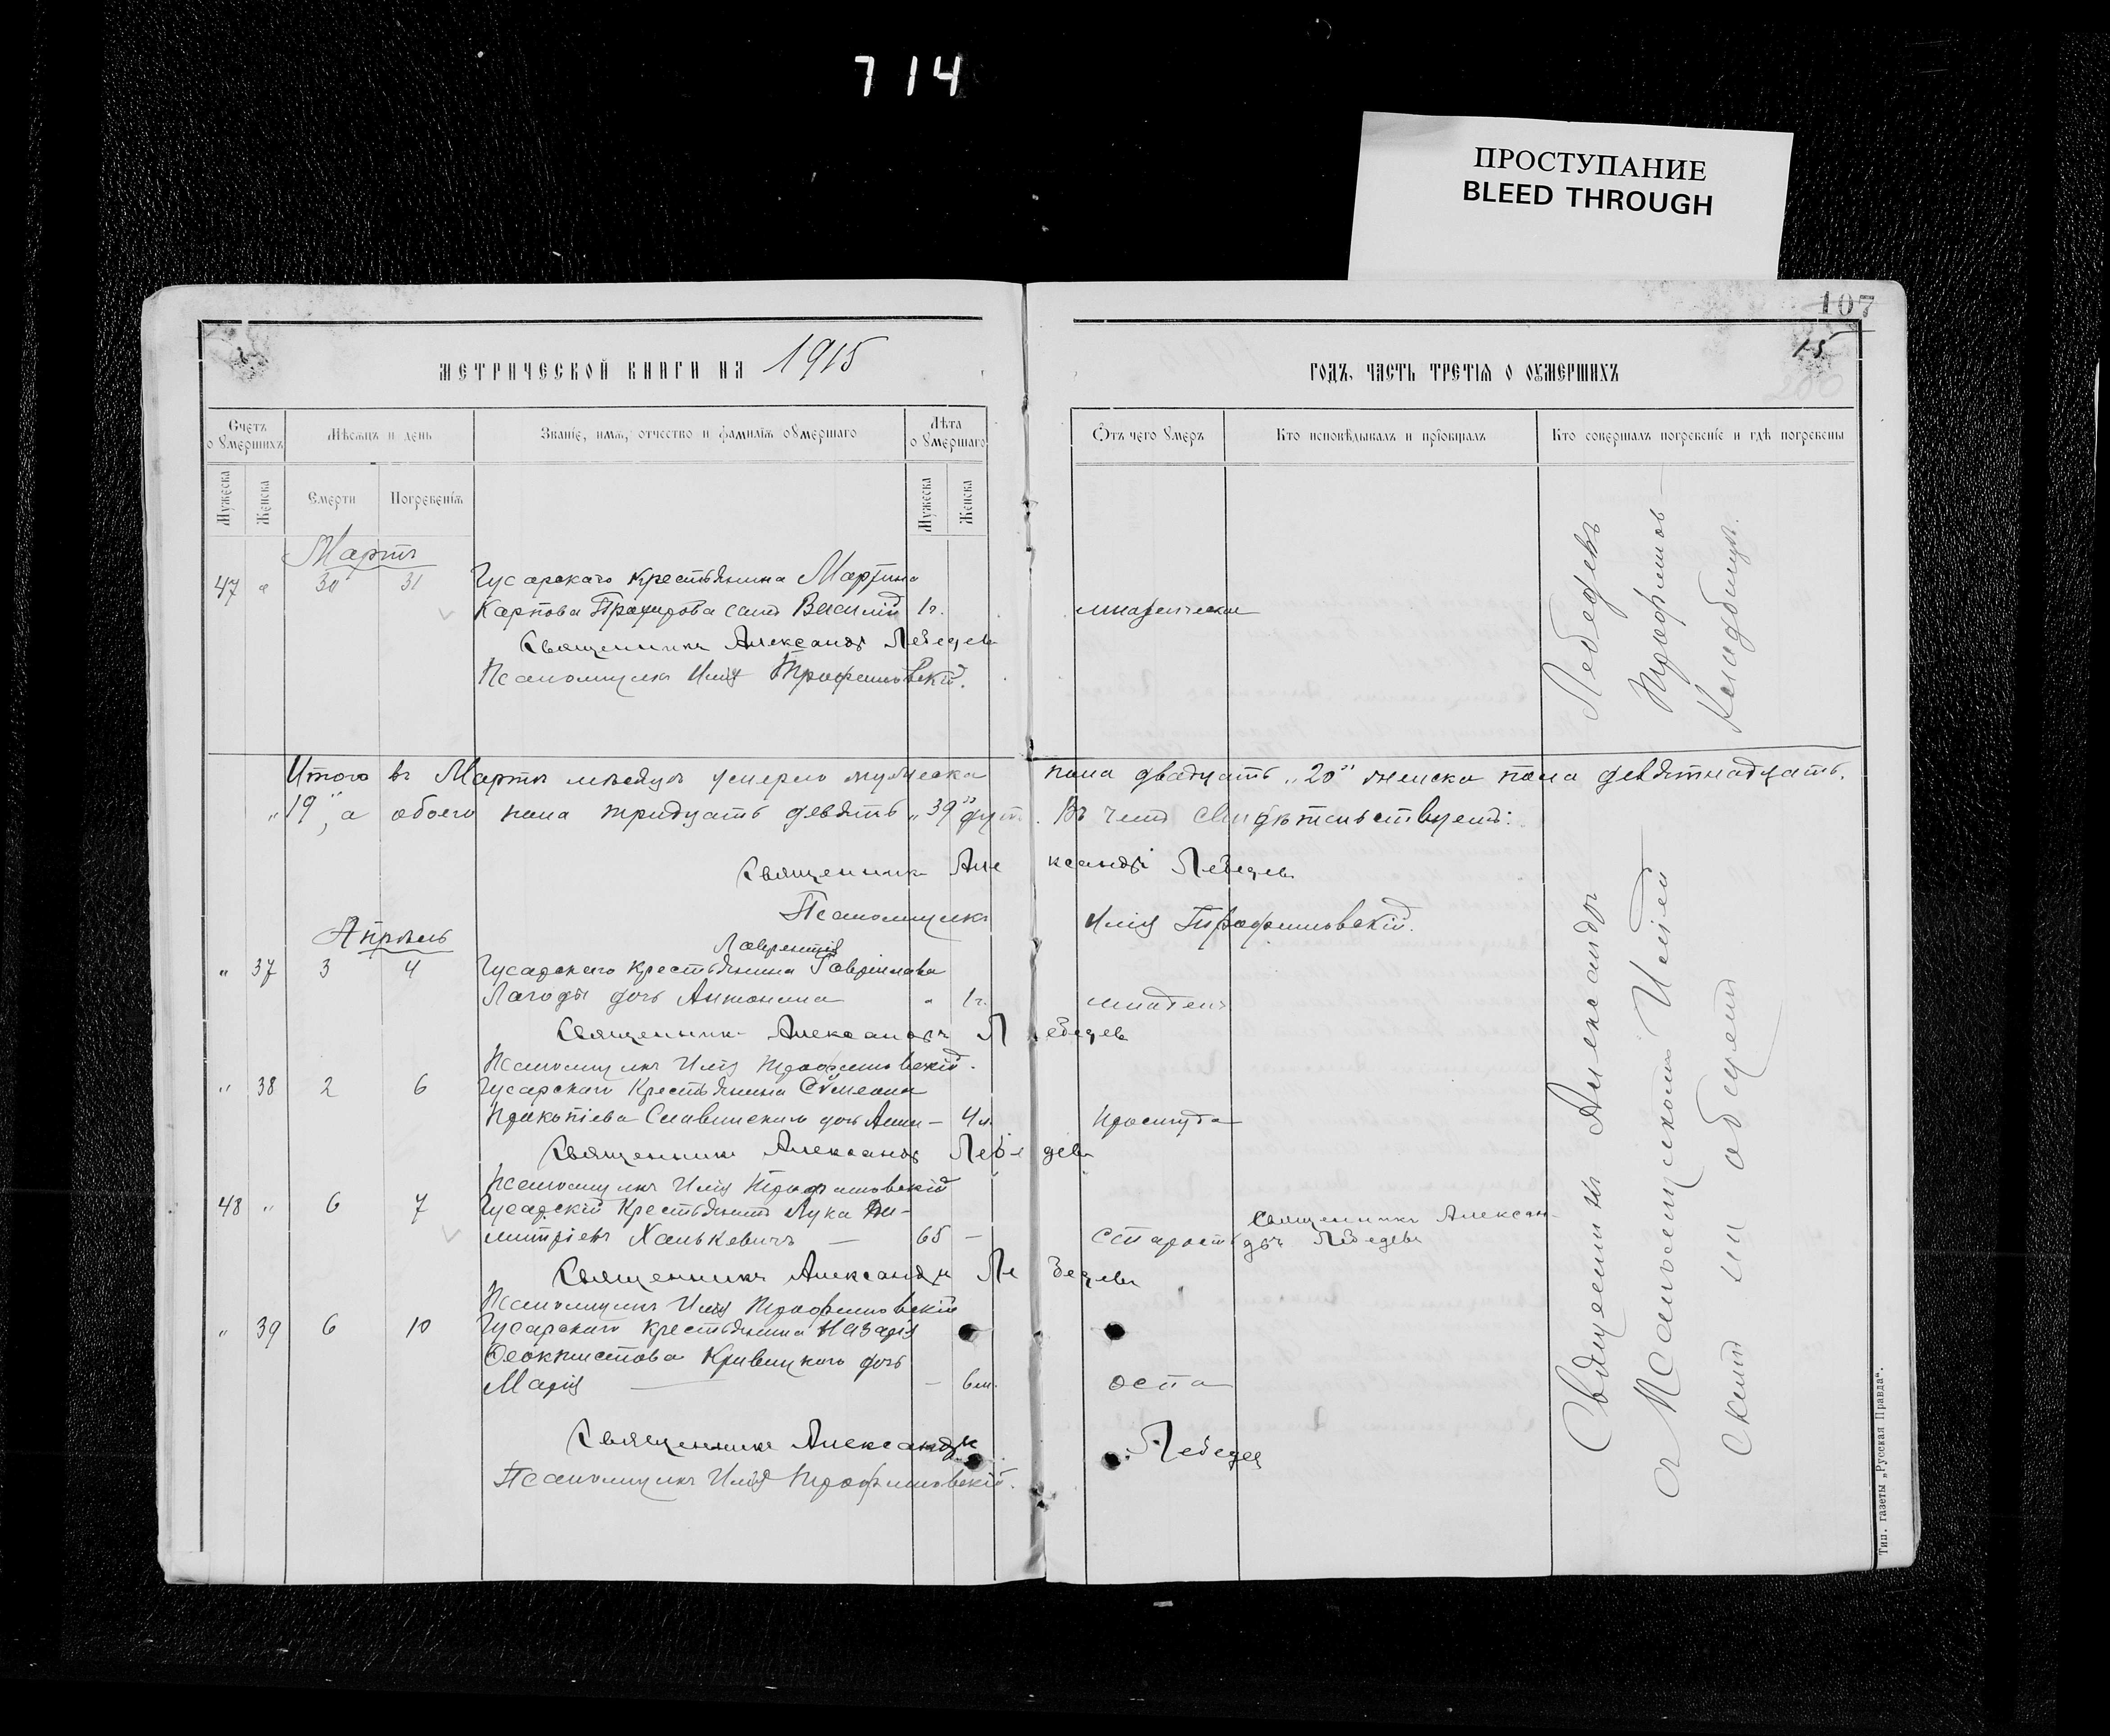 714
ПРОСТУПАНИЕ
BLEED THROUGH
107
15
МЕТРИЧЕСКОЙ КНИГИ НА 1915
ГОДЪ, ЧАСТЬ ТРЕТІЯ О ОУМЕРШИХЪ
Счетъ о Умершихъ
Мѣсяцъ и день
Званіе, имя, отчество и фамилія оумершаго
Лѣта о Умершаго
Отъ чего Умеръ
Кто исповѣдывалъ и пріобщалъ
Кто совершалъ погребеніе и гдѣ погребены
Мужеска
Женска
Смерти
Погребенія
Мужеска
Женска
Мартъ
47 " 30 31 Гусарскаго крестьянина Мартина
Карпова сынъ Василій 1 г. младенческая
Священникъ Александръ Лебедевъ
Псаломщикъ Илія Трофимовскій.
Итого въ Мартѣ мѣсяцѣ умерло мужеска пола двадцать „20" женска пола девятнадцать
„19", а обоего пола тридцать девять „39" душъ. Въ чемъ свидѣтельствуемъ:
Священникъ Александръ Лебедевъ
Псаломщикъ Илія Трофимовскій.
Апрѣль
Лаврентія
" 37 3 4 Гусарскаго крестьянина Гавріилова
Лагоды дочь Антонина " 1 г. младенч
Священникъ Александръ Лебедевъ
Псаломщикъ Илія Трофимовскій.
" 38 2 6 Гусарскаго крестьянина Сѵмеона
Прокопіева Славинскаго дочь Анна – 4 м. простуда
Священникъ Александръ Лебедевъ
Псаломщикъ Илія Трофимовскій
48 " 6 7 Гусарскій крестьянинъ Лука Ди-
митріевъ Ханькевичъ — 65 – старость Священникъ Александръ Лебедевъ
Священникъ Александръ Лебедевъ
Псаломщикъ Илія Трофимовскій
" 39 6 10 Гусарскаго крестьянина Назарія
Феоктистова Кривицкаго дочь
Марія — – 6 м. оспа
Священникъ Александръ Лебедев
Псаломщикъ Илія Трофимовскій.
Священникъ Александръ Лебедевъ
съ Псаломщикомъ Иліею Трофимов-
скимъ на общемъ кладбищѣ.
Тип. газеты „Русская Правда".